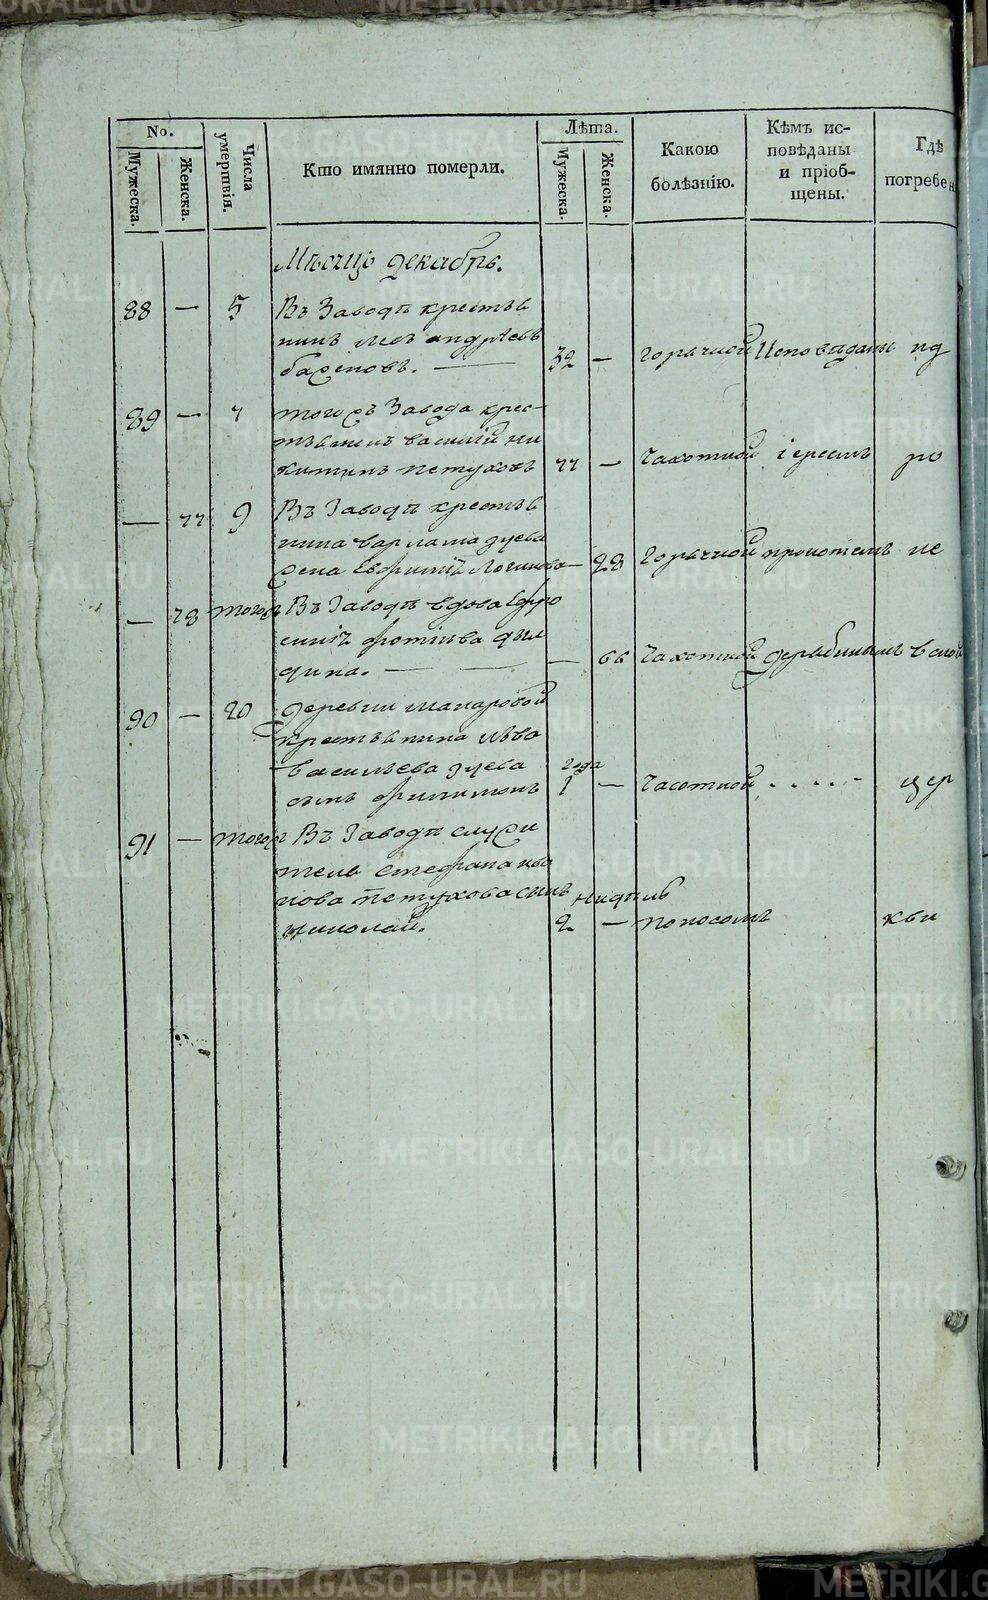 No.
Мужеска.
Женска.
Числа умертвія.
Кто имянно померли.
Лѣта.
Мужеска.
Женска.
Какою
болѣзнію.
Кѣмъ ис-
повѣданы
и пріоб-
щены.
Гдѣ
погребен
Мѣсяцъ декабрь.
88 — 5 Въ Заводѣ крестья
нинъ левъ андрѣевъ
баженовъ. — 32 — горячкой Исповѣданы пд
89 — 7 тогожъ Завода крес-
тьянинъ василій ни
китинъ петуховъ 77 — Чахоткой іереемъ ро
— 77 9 Въ Заводѣ крестья
нина варлама зуева
жена Евфимія Логинова — 28 Горячкой прокопіемъ не
— 78 тогожъ Въ Заводѣ вдова Евфро
синія фотіева
— 66 Чахоткой дерябинымъ
90 — 20 деревни макаровой
крестьянина льва
васильева зуева года
сынъ филимонъ 1 — Чахоткой . . . . — цер
91 — тогожъ Въ Заводѣ служи
тель стефана ива
нова петухова сынъ нидѣль
николай. 2 — поносомъ кви
METRIKI.GASO-URAL.RU